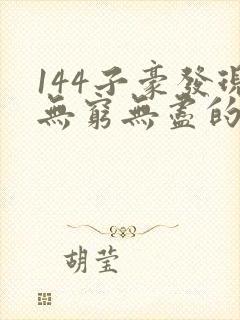 144子豪發現
無窮無盡的
胡莹